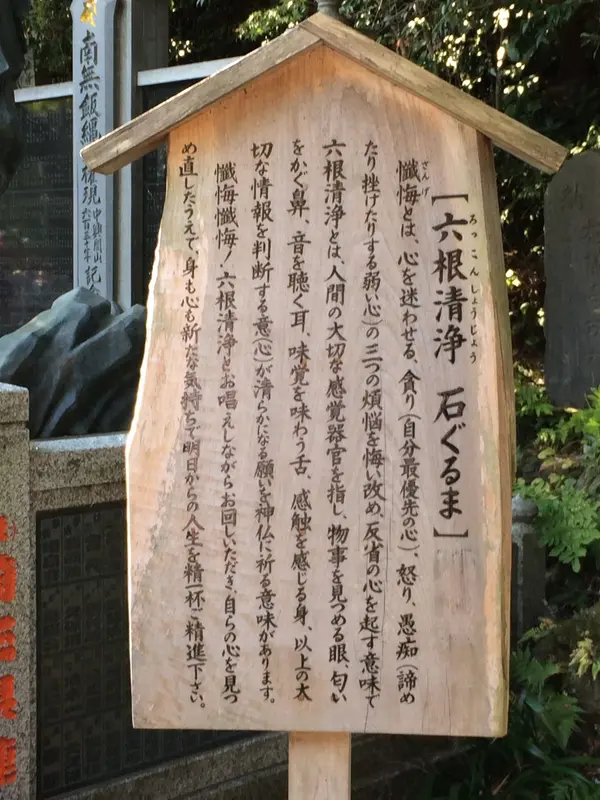 ろっこんしょうじょう
[六根清浄 石ぐるま]
さんげ
懺悔とは、心を迷わせる、貪り(自分最優先の心)、怒り、愚痴(諦め
たり挫けたりする弱い心)の三つの煩悩を悔い改め、反省の心を起す意味で
六根清浄とは、人間の大切な感覚器官を指し、物事を見つめる眼、匂い
をかぐ鼻、音を聴く耳、味覚を味わう舌、感触を感じる身、以上の大
切な情報を判断する意(心)が清らかになる願いを神仏に祈る意味があります。
懺悔懺悔!六根清浄とお唱えしながらお回しいただき、自らの心を見つ
め直したうえで、身も心も新たな気持ちで明日からの人生を精一杯ご精進下さい。
南無飯縄 権現
中興開山
六百五十年
記